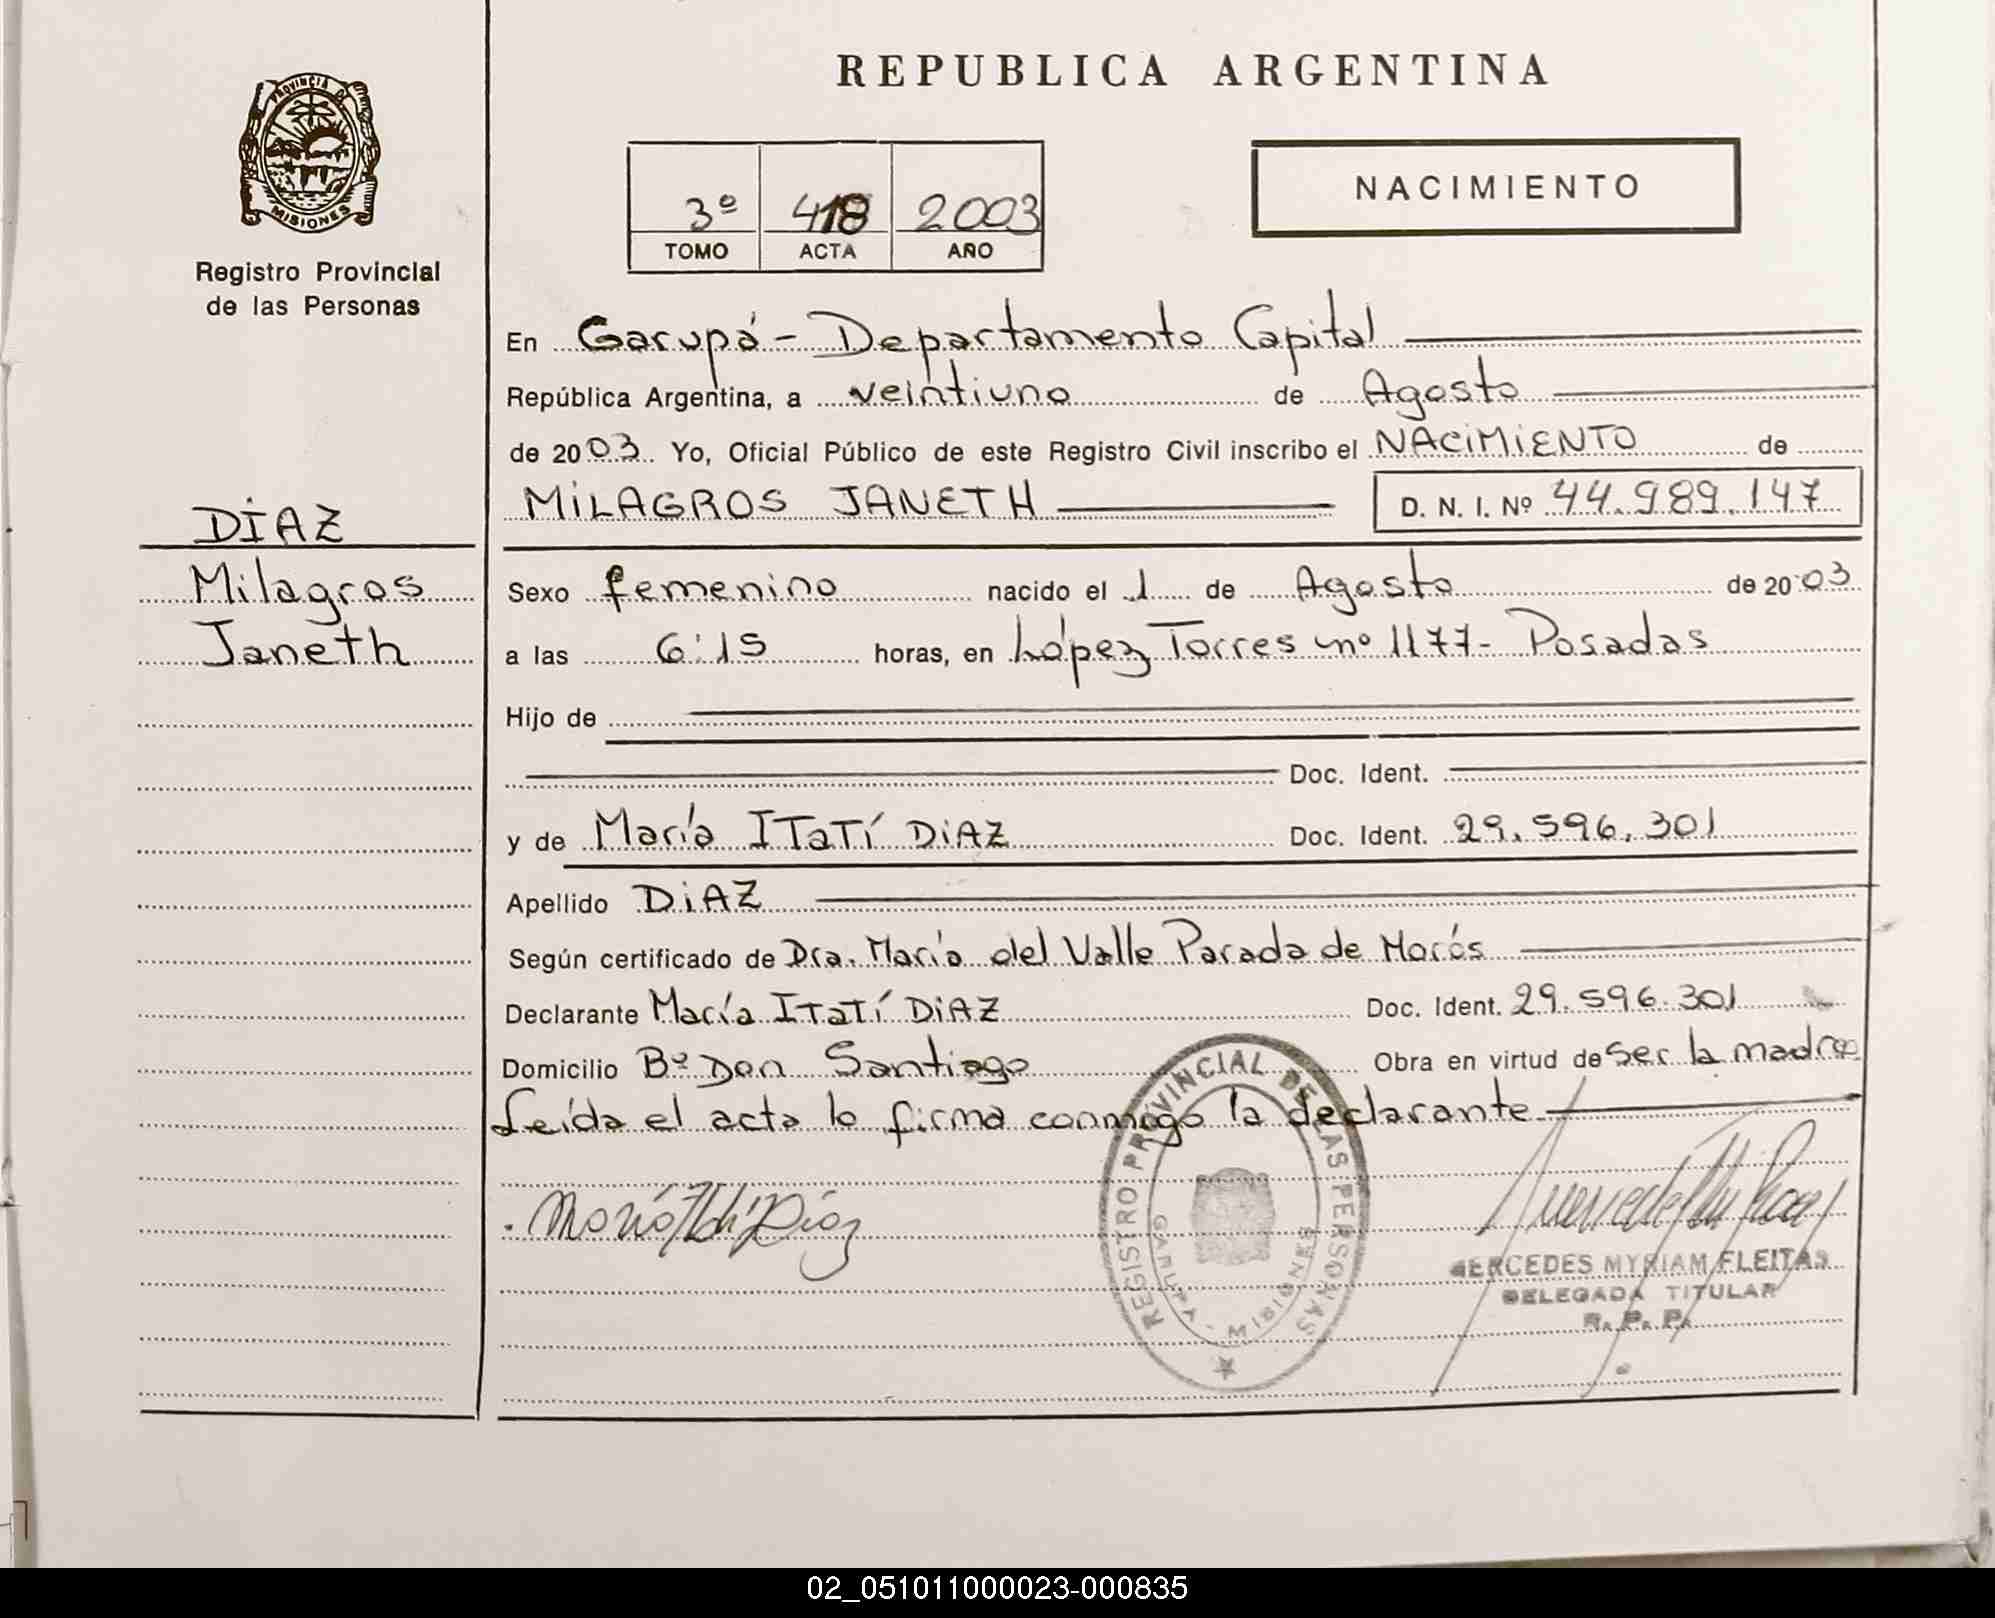 REPUBLICA ARGENTINA
PROVINCIA DE
MISIONES
Registro Provincial
de las Personas
3º 418 2003
TOMO ACTA AÑO
NACIMIENTO
En Garupá - Departamento Capital
República Argentina, a veintiuno de Agosto
de 2003 Yo, Oficial Público de este Registro Civil inscribo el NACIMIENTO de
MILAGROS JANETH D. N. I. Nº 44.989.147
DIAZ
Milagros
Janeth
Sexo femenino nacido el 1 de Agosto de 2003
a las 6:15 horas, en López Torres nº 1177- Posadas
Hijo de
Doc. Ident.
y de María ITaTí DiAZ Doc. Ident. 29.596.301
Apellido DiAZ
Según certificado de Dra. María del Valle Parada de Morós
Declarante María ITaTí DiAZ Doc. Ident. 29.596.301
Domicilio Bº Don Santiago Obra en virtud de Ser la madre
Leída el acta lo firma conmigo la declarante
María Itatí Díaz
REGISTRO PROVINCIAL DE LAS PERSONAS
GARUPA - MISIONES
MERCEDES MYRIAM FLEITAS
DELEGADA TITULAR
R. P. P.
02_051011000023-000835